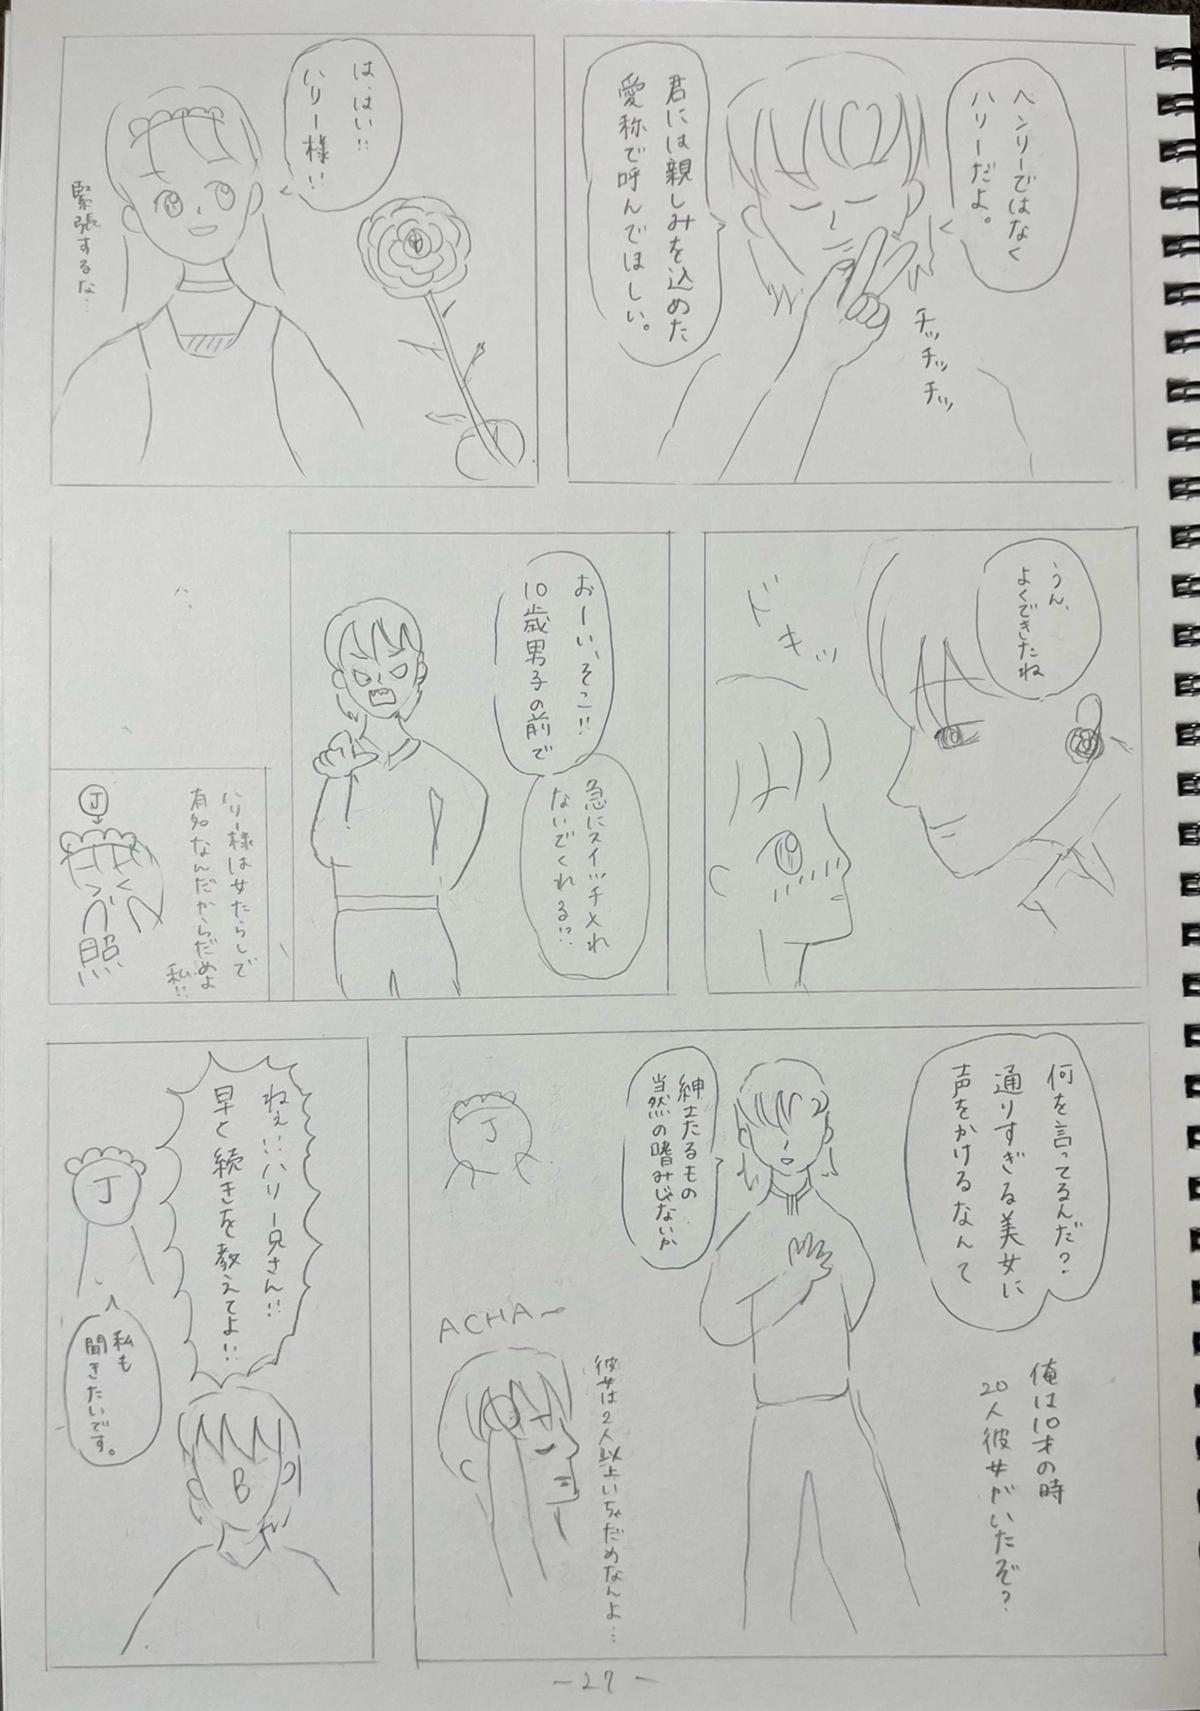 ヘンリーではなく
ハリーだよ。
君には親しみを込めた
愛称で呼んでほしい。
チッ
チッ
チッ
は、はい!!
ハリー様!!
緊張するな…
うん、
よくできたね
ドキッ
おーい、そこ!!
10歳男子の前で
急にスイッチ入れ
ないでくれる!?
ハリー様は女たらしで
有名なんだからだめよ
私!!
J
照
何を言ってるんだ?
通りすぎる美女に
声をかけるなんて
紳士たるもの
当然の嗜みじゃないか
俺は10才の時
20人彼女がいたぞ?
J
ACHA~
彼女は2人以上いちゃだめなんよ…
ねぇ!!ハリー兄さん!!
早く続きを教えてよ!!
J
私も
聞きたいです。
B
-27-